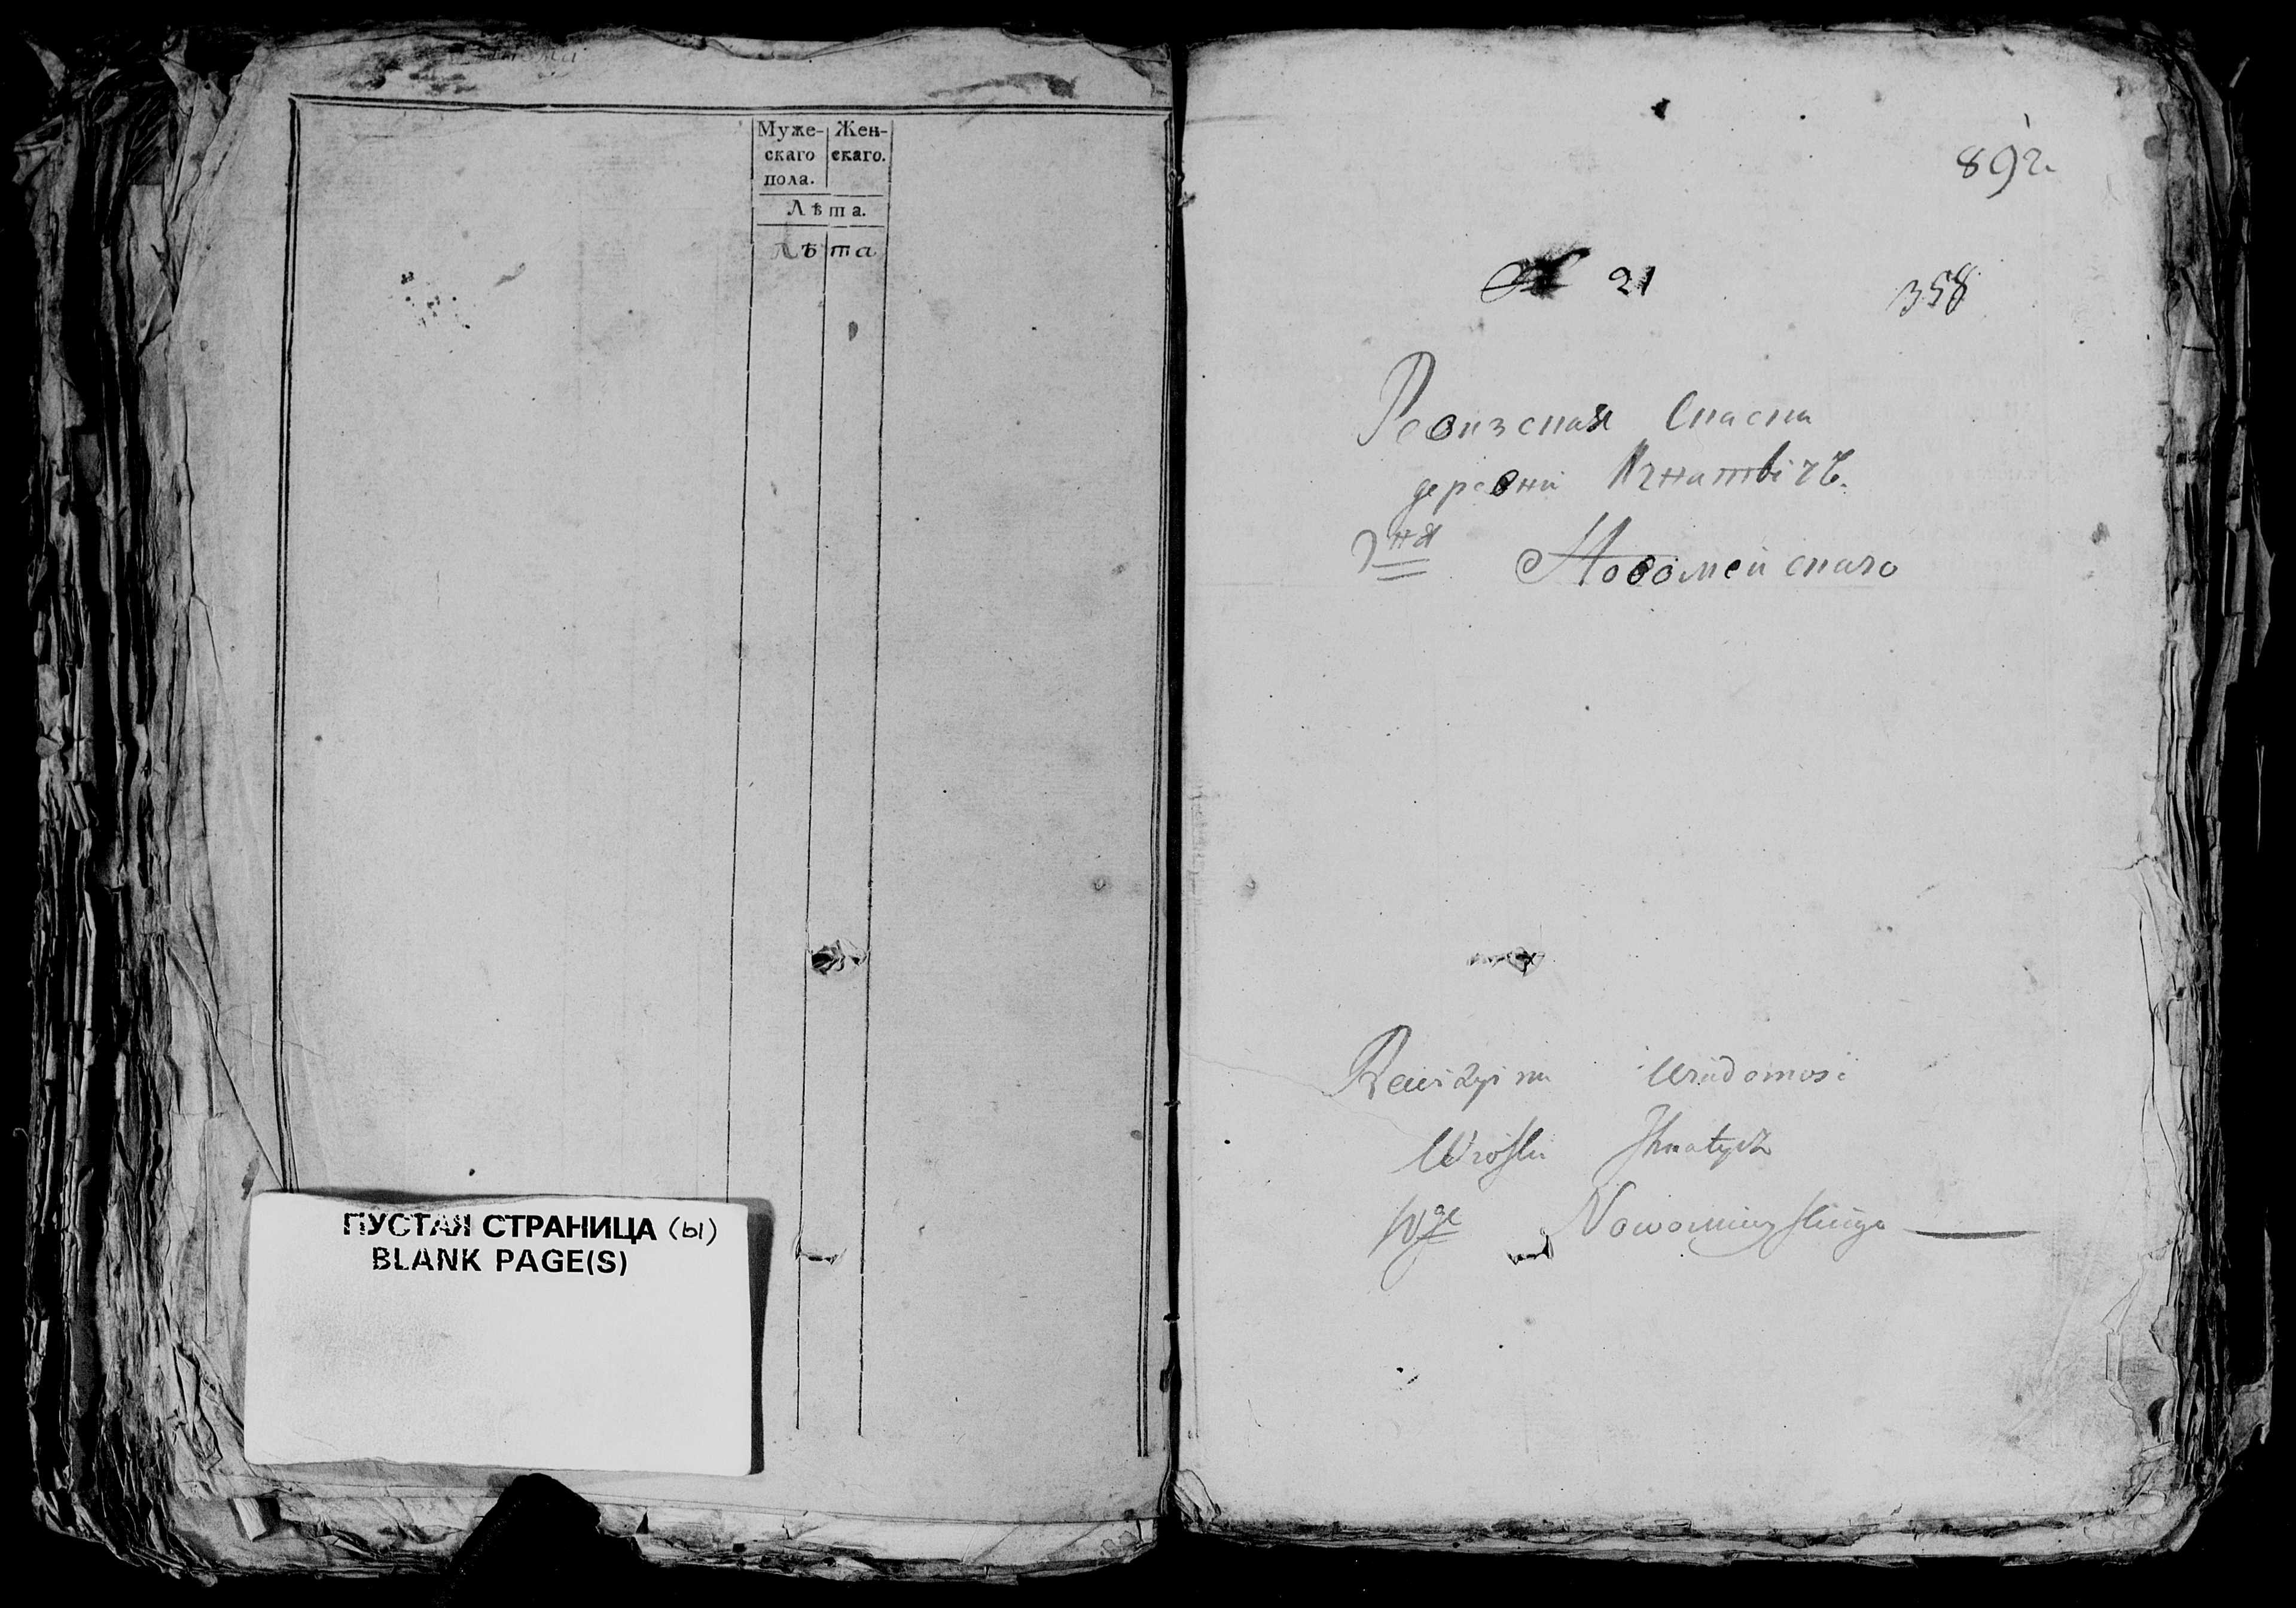 Муже- Жен-
скаго скаго.
пола.
Лѣта.
Лѣта
ПУСТАЯ СТРАНИЦА (ы)
BLANK PAGE(S)
892.
№ 21 358
Ревизская Сказка
деревни Игнатвичъ.
Новомейскаго
Rewizyina Wiadomosc
Wioski Ihnatycz
Nowomieyskiego